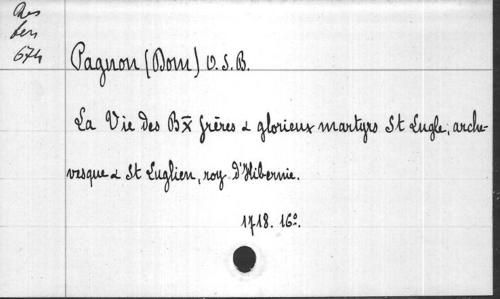 Res
fen
674
Pagnon (Dom) O.S.B.
La Vie des BX frères & glorieux martyrs St Lugle, arche-
vesque & St Luglien, roy d'Hibernie.
1718. 16°.